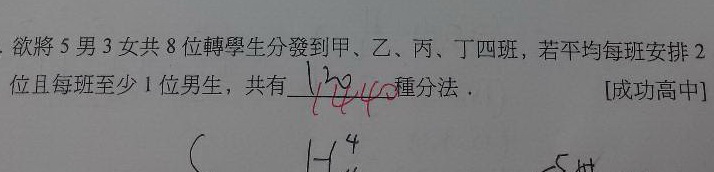 . 欲將 5 男 3 女共 8 位轉學生分發到甲、乙、丙、丁四班，若平均每班安排 2
位且每班至少 1 位男生，共有 120 1440 種分法． [成功高中]